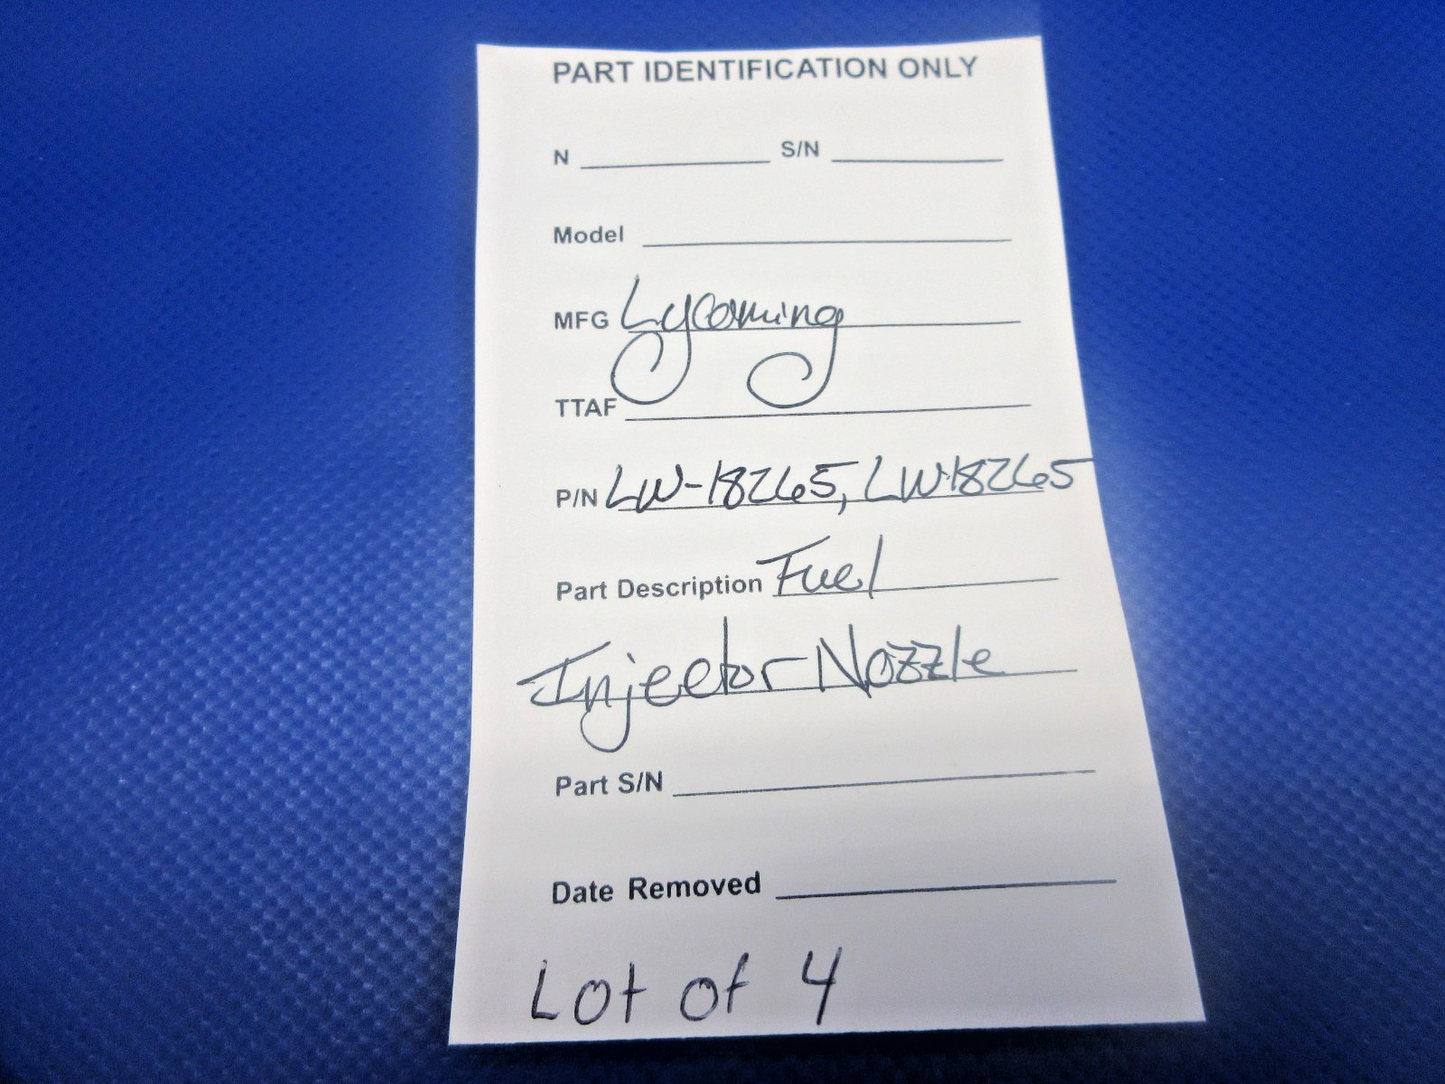 PART IDENTIFICATION ONLY
N S/N
Model
MFG Lycoming
TTAF
P/N LW-18265, LW18265
Part Description Fuel
Injector Nozzle
Part S/N
Date Removed
Lot of 4